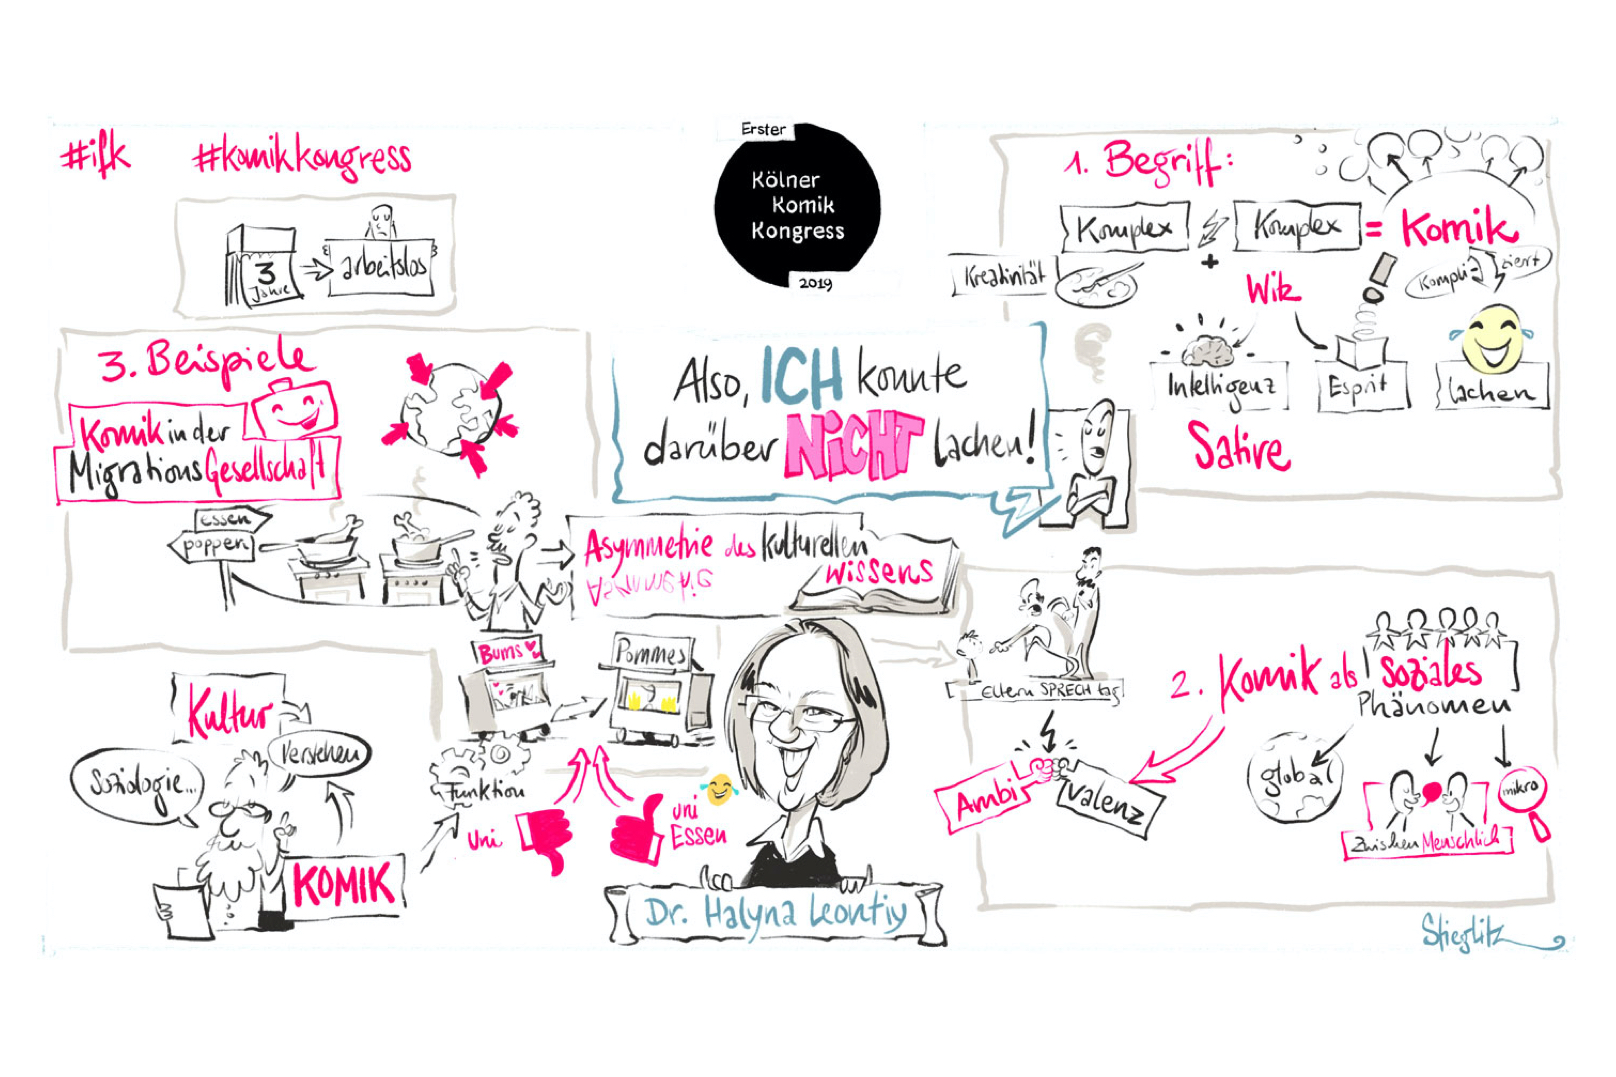 #ifk
#komikkongress
3
Jahre
arbeitslos
Erster
Kölner
Komik
Kongress
2019
1. Begriff:
Komplex
Komplex
=
Komik
Kreativität
+
Witz
Kompli-
ziert
Intelligenz
Esprit
lachen
Satire
3. Beispiele
Komik in der
MigrationsGesellschaft
Also, ICH konnte
darüber NICHT lachen!
essen
poppen
Asymmetrie des kulturellen
Wissens
Asymmetrie
Bums
Pommes
Eltern SPRECHtag
2. Komik als soziales
Phänomen
Kultur
Verstehen
Soziologie...
KOMIK
Funktion
uni
uni
Essen
Ambi
valenz
global
mikro
ZwischenMenschlich
Dr. Halyna Leontiy
Stieglitz